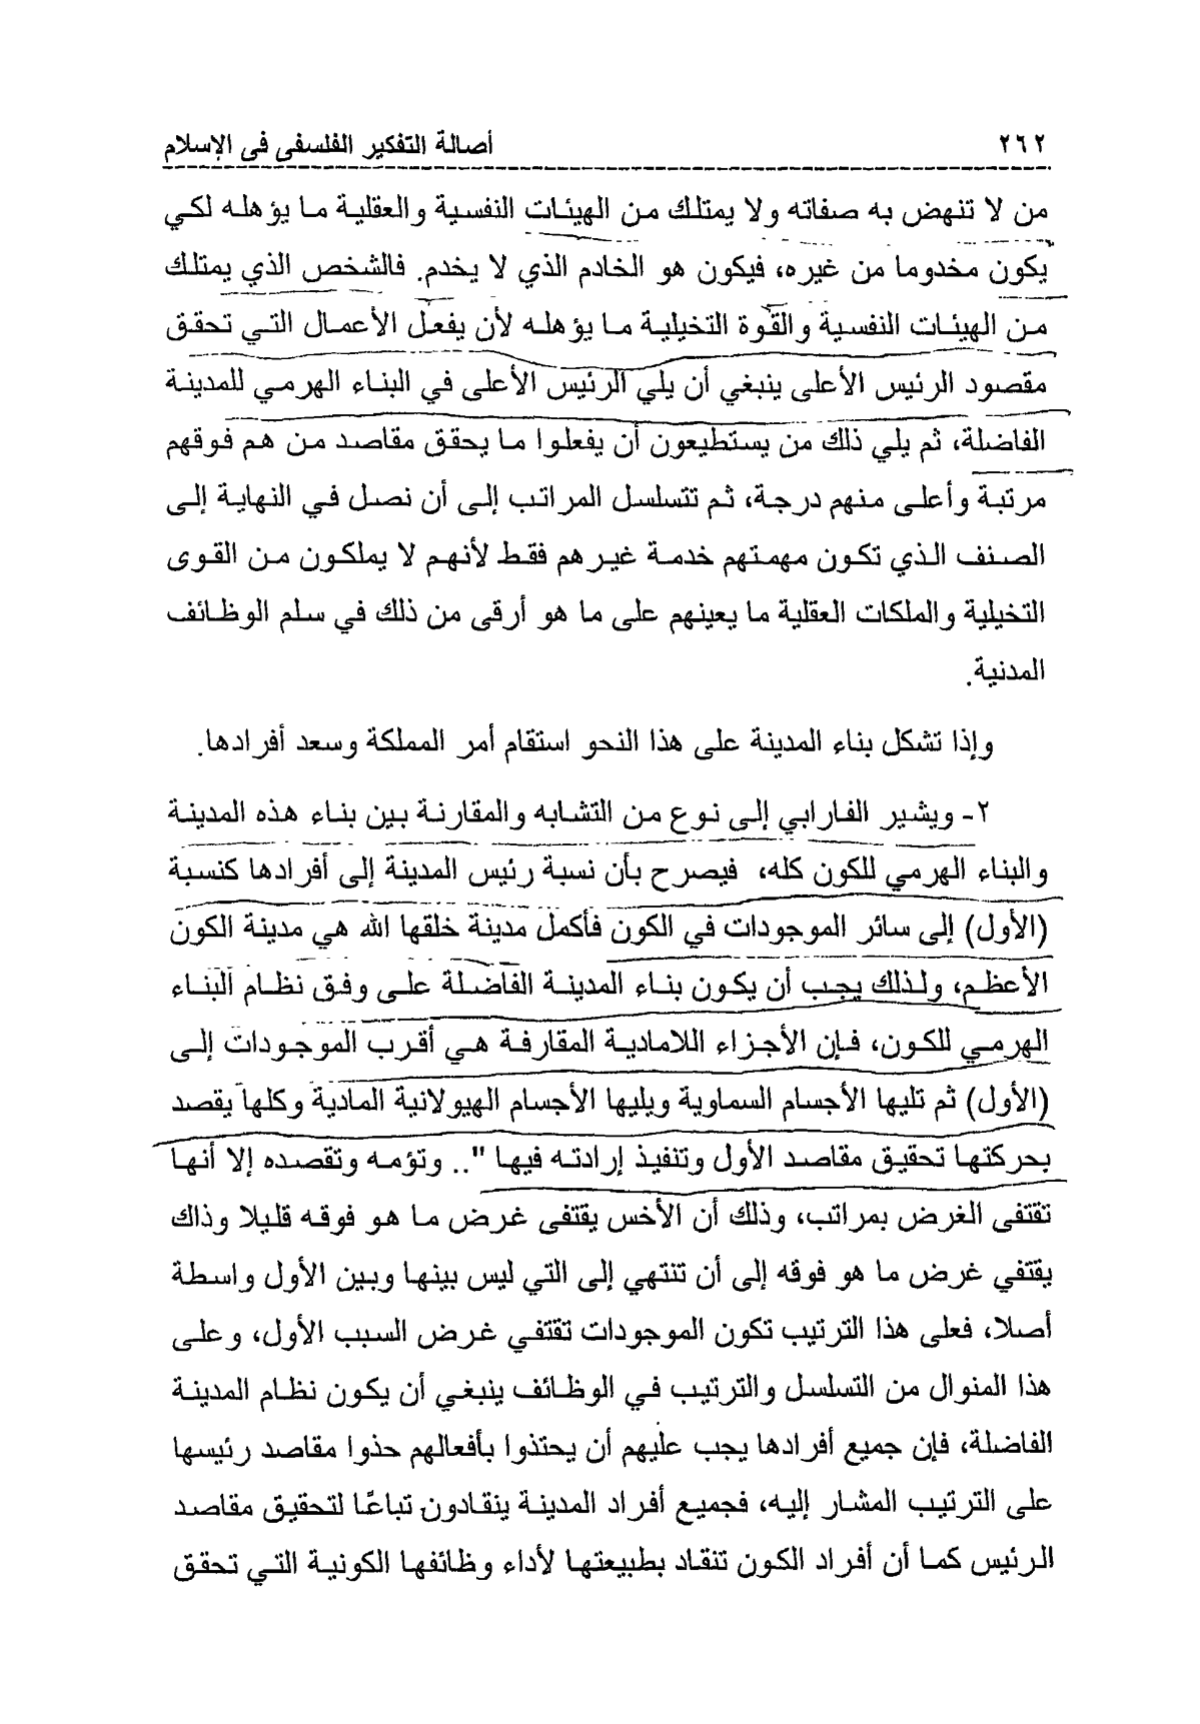 ٢٦٢ أصالة التفكير الفلسفى فى الإسلام
من لا تنهض به صفاته ولا يمتلك من الهيئات النفسية والعقلية ما يؤهله لكي
يكون مخدوما من غيره، فيكون هو الخادم الذي لا يخدم. فالشخص الذي يمتلك
من الهيئات النفسية والقوة التخيلية ما يؤهله لأن يفعل الأعمال التي تحقق
مقصود الرئيس الأعلى ينبغي أن يلي الرئيس الأعلى في البناء الهرمي للمدينة
الفاضلة، ثم يلي ذلك من يستطيعون أن يفعلوا ما يحقق مقاصد من هم فوقهم
مرتبة وأعلى منهم درجة، ثم تتسلسل المراتب إلى أن نصل في النهاية إلى
الصنف الذي تكون مهمتهم خدمة غيرهم فقط لأنهم لا يملكون من القوى
التخيلية والملكات العقلية ما يعينهم على ما هو أرقى من ذلك في سلم الوظائف
المدنية.
وإذا تشكل بناء المدينة على هذا النحو استقام أمر المملكة وسعد أفرادها.
٢- ويشير الفارابي إلى نوع من التشابه والمقارنة بين بناء هذه المدينة
والبناء الهرمي للكون كله، فيصرح بأن نسبة رئيس المدينة إلى أفرادها كنسبة
(الأول) إلى سائر الموجودات في الكون فأكمل مدينة خلقها الله هي مدينة الكون
الأعظم، ولذلك يجب أن يكون بناء المدينة الفاضلة على وفق نظام البناء
الهرمي للكون، فإن الأجزاء اللامادية المقارفة هي أقرب الموجودات إلى
(الأول) ثم تليها الأجسام السماوية ويليها الأجسام الهيولانية المادية وكلها يقصد
بحركتها تحقيق مقاصد الأول وتنفيذ إرادته فيها ".. وتؤمه وتقصده إلا أنها
تقتفى الغرض بمراتب، وذلك أن الأخس يقتفى غرض ما هو فوقه قليلا وذاك
يقتفي غرض ما هو فوقه إلى أن تنتهي إلى التي ليس بينها وبين الأول واسطة
أصلا، فعلى هذا الترتيب تكون الموجودات تقتفي غرض السبب الأول، وعلى
هذا المنوال من التسلسل والترتيب في الوظائف ينبغي أن يكون نظام المدينة
الفاضلة، فإن جميع أفرادها يجب عليهم أن يحتذوا بأفعالهم حذوا مقاصد رئيسها
على الترتيب المشار إليه، فجميع أفراد المدينة ينقادون تباعًا لتحقيق مقاصد
الرئيس كما أن أفراد الكون تنقاد بطبيعتها لأداء وظائفها الكونية التي تحقق